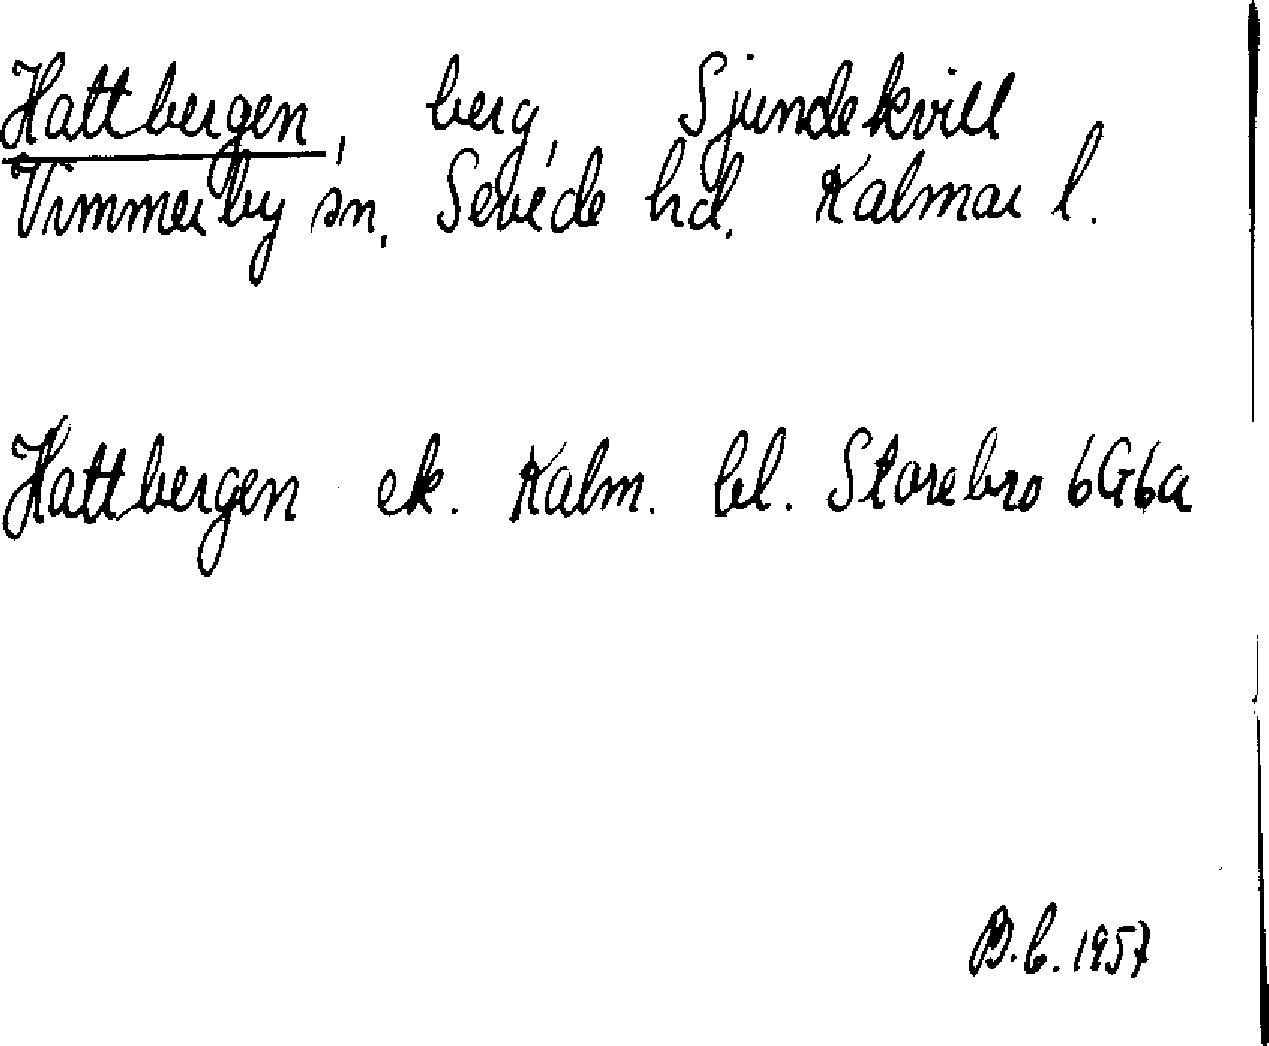 Hattbergen, berg, Sjundekvill
Vimmerby sn, Sevede hd. Kalmar l.
Hattbergen ek. Kalm. bl. Storebro 6G6a
B.b. 1957